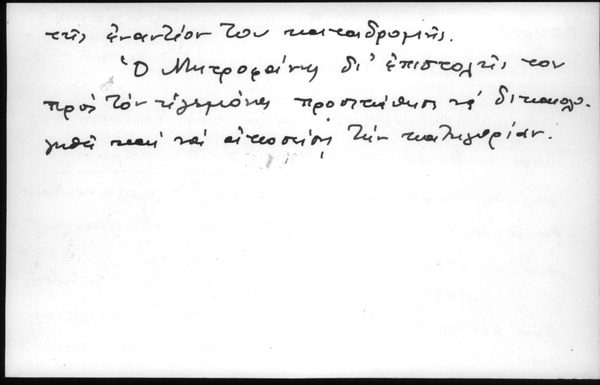 τῆς ἐναντίον του καταδρομῆς.
Ὁ Μητροφάνης δι' ἐπιστολῆς του
πρὸς τὸν ἡγεμόνα προσεπάθησε νὰ δικαιολο-
γηθῇ καὶ νὰ ἀποσείσῃ τὴν κατηγορίαν.